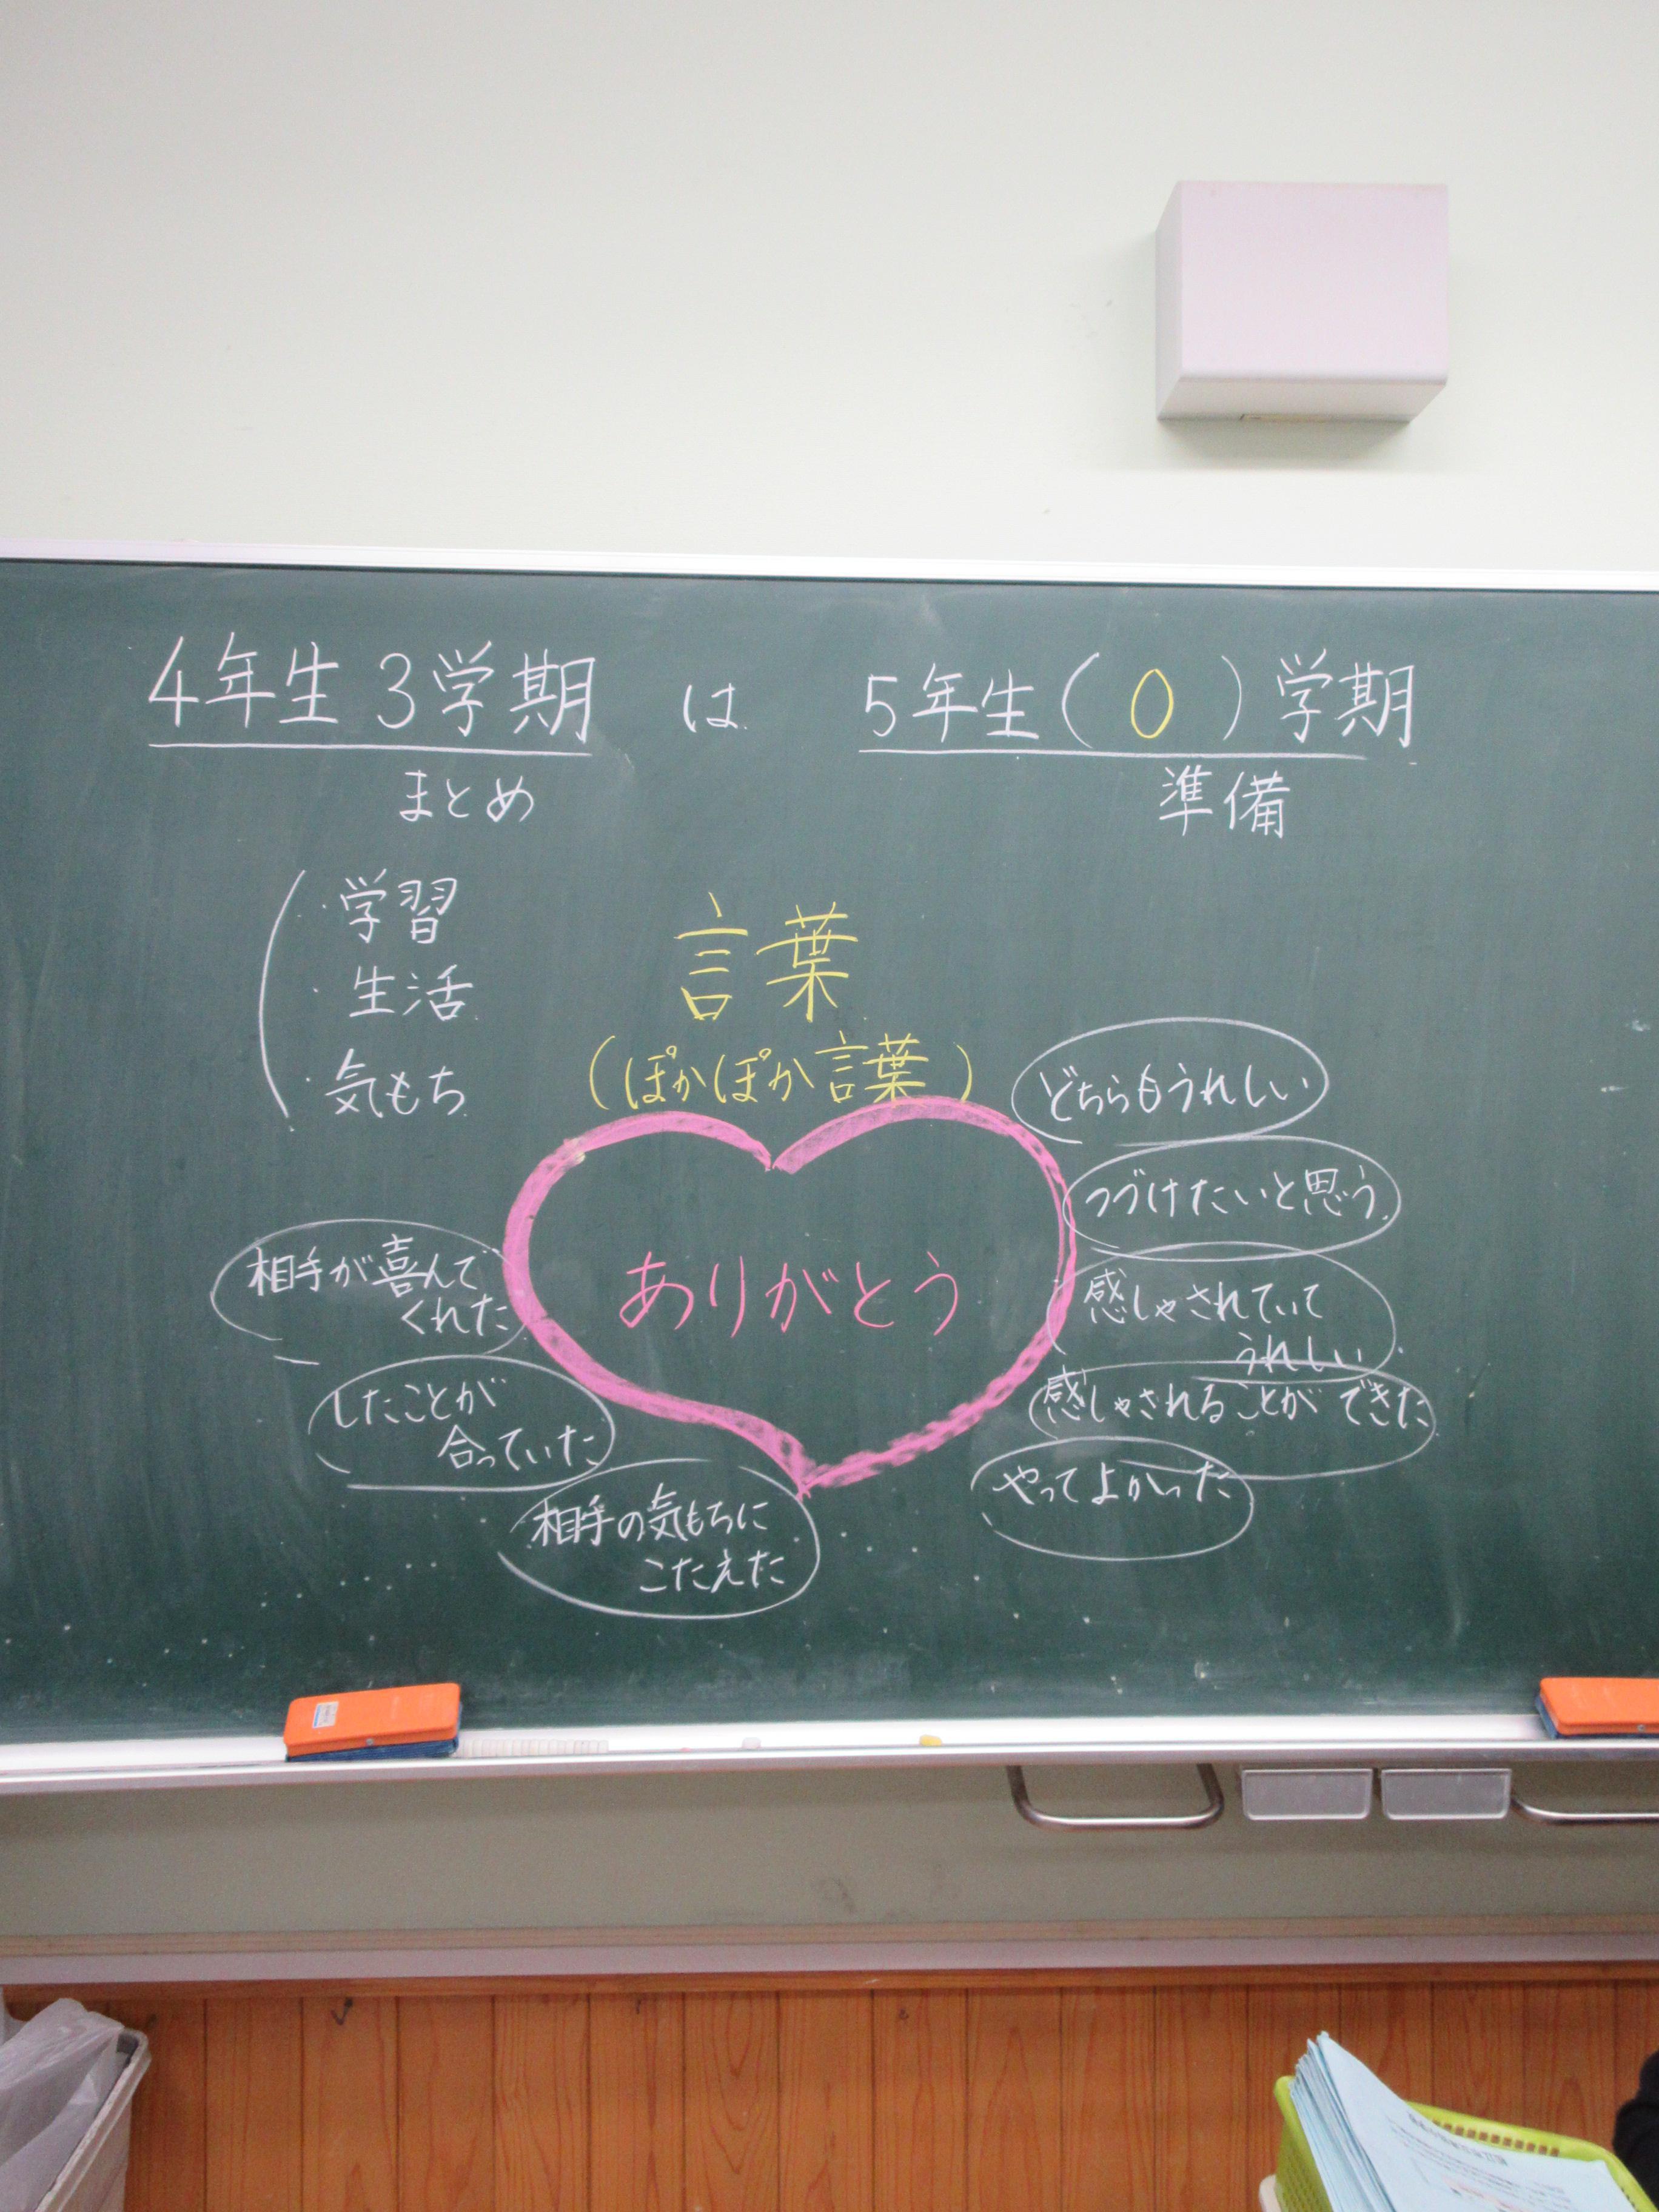 4年生3学期 は 5年生(0)学期
まとめ
準備
・学習
・生活
・気もち
言葉
(ぽかぽか言葉)
ありがとう
どちらもうれしい
つづけたいと思う
感しゃされていて
うれしい
感しゃされることができた
やってよかった
相手が喜んで
くれた
したことが
合っていた
相手の気もちに
こたえた